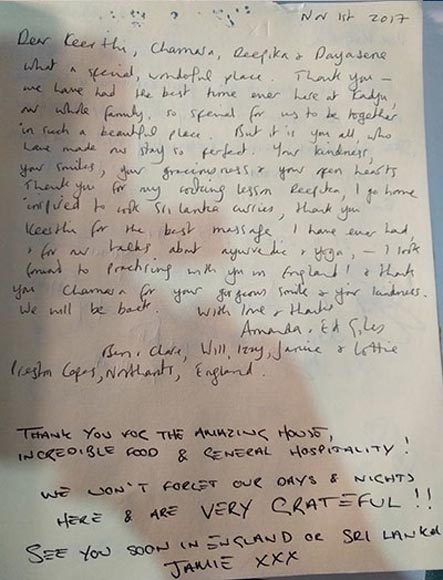 Nov 1st 2017
Dear Keerthi, Chamara, Deepika & Dayasene
what a special, wonderful place. Thank you –
we have had the best time ever here at Kadju,
our whole family, so special for us to be together
in such a beautiful place. But it is you all, who
have made our stay so perfect. Your kindness,
your smiles, your graciousness & your open hearts
Thank you for my cooking lesson Deepika, I go home
inspired to cook Sri Lanka curries, thank you
Keerthi for the best massage I have ever had,
& for our talks about ayurvedic & yoga, – I look
forward to practising with you in England! & thank
you Chamara for your gorgeous smile & your kindness.
We will be back. With love & thanks
Amanda & Ed Giles
Ben, Clare, Will, Izzy, Janice & Lottie
Preston Capes, Northants, England.
THANK YOU FOR THE AMAZING HOUSE,
INCREDIBLE FOOD & GENERAL HOSPITALITY!
WE WON'T FORGET OUR DAYS & NIGHTS
HERE & ARE VERY GRATEFUL!!
SEE YOU SOON IN ENGLAND OR SRI LANKA
JAMIE XXX